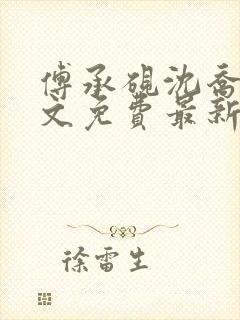 傅承砚沈乔
文免费最新
徐雷生